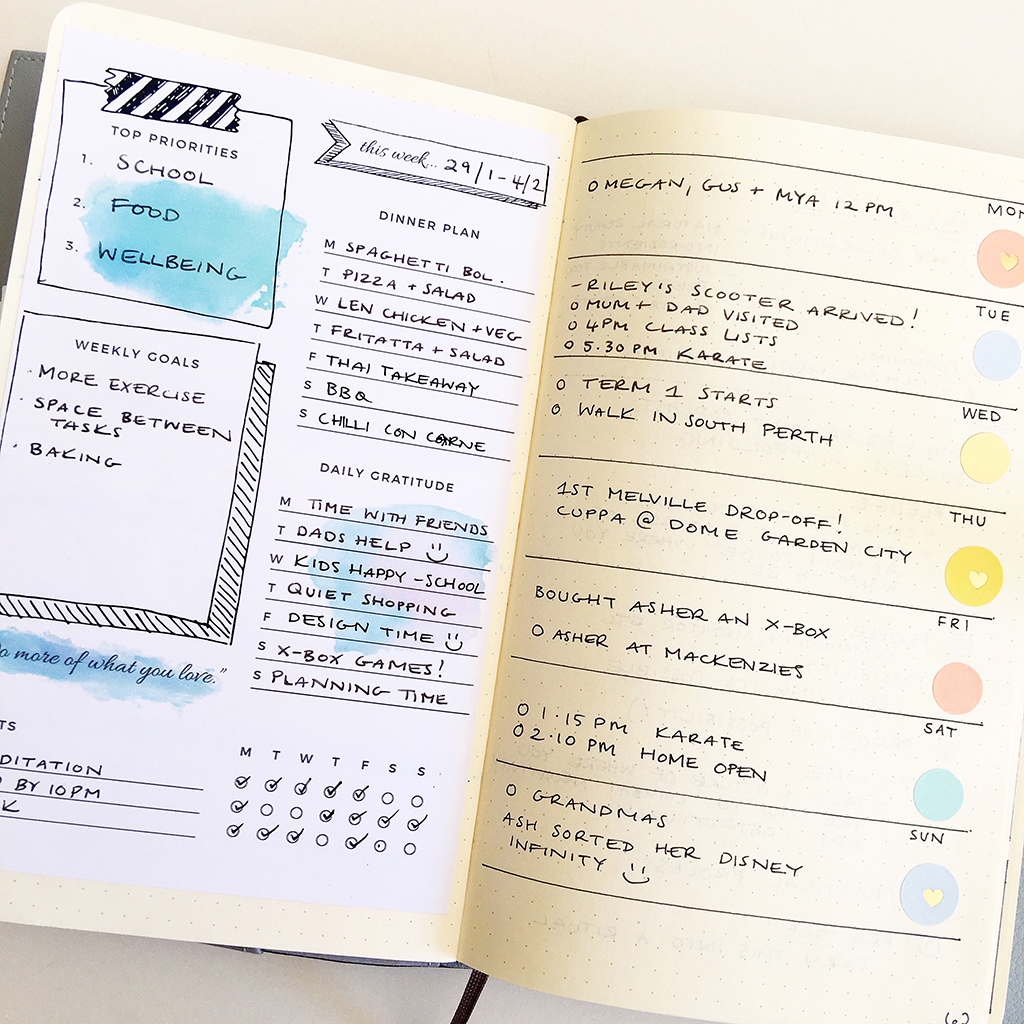 TOP PRIORITIES
1. SCHOOL
2. FOOD
3. WELLBEING
WEEKLY GOALS
· MORE EXERCISE
· SPACE BETWEEN
TASKS
· BAKING
do more of what you love."
DITATION
BY 10PM
K
this week... 29/1-4/2
DINNER PLAN
M SPAGHETTI BOL.
T PIZZA + SALAD
W LEN CHICKEN + VEG
T FRITATTA + SALAD
F THAI TAKEAWAY
S BBQ
S CHILLI CON CARNE
DAILY GRATITUDE
M TIME WITH FRIENDS
T DADS HELP
W KIDS HAPPY - SCHOOL
T QUIET SHOPPING
F DESIGN TIME
S X-BOX GAMES!
S PLANNING TIME
M T W T F S S
MON
O MEGAN, GUS + MYA 12 PM
TUE
- RILEY'S SCOOTER ARRIVED!
O MUM + DAD VISITED
O 4PM CLASS LISTS
O 5.30 PM KARATE
WED
O TERM 1 STARTS
O WALK IN SOUTH PERTH
THU
1ST MELVILLE DROP-OFF!
CUPPA @ DOME GARDEN CITY
FRI
BOUGHT ASHER AN X-BOX
O ASHER AT MACKENZIES
SAT
O 1.15 PM KARATE
O 2.10 PM HOME OPEN
SUN
O GRANDMAS
ASH SORTED HER DISNEY
INFINITY